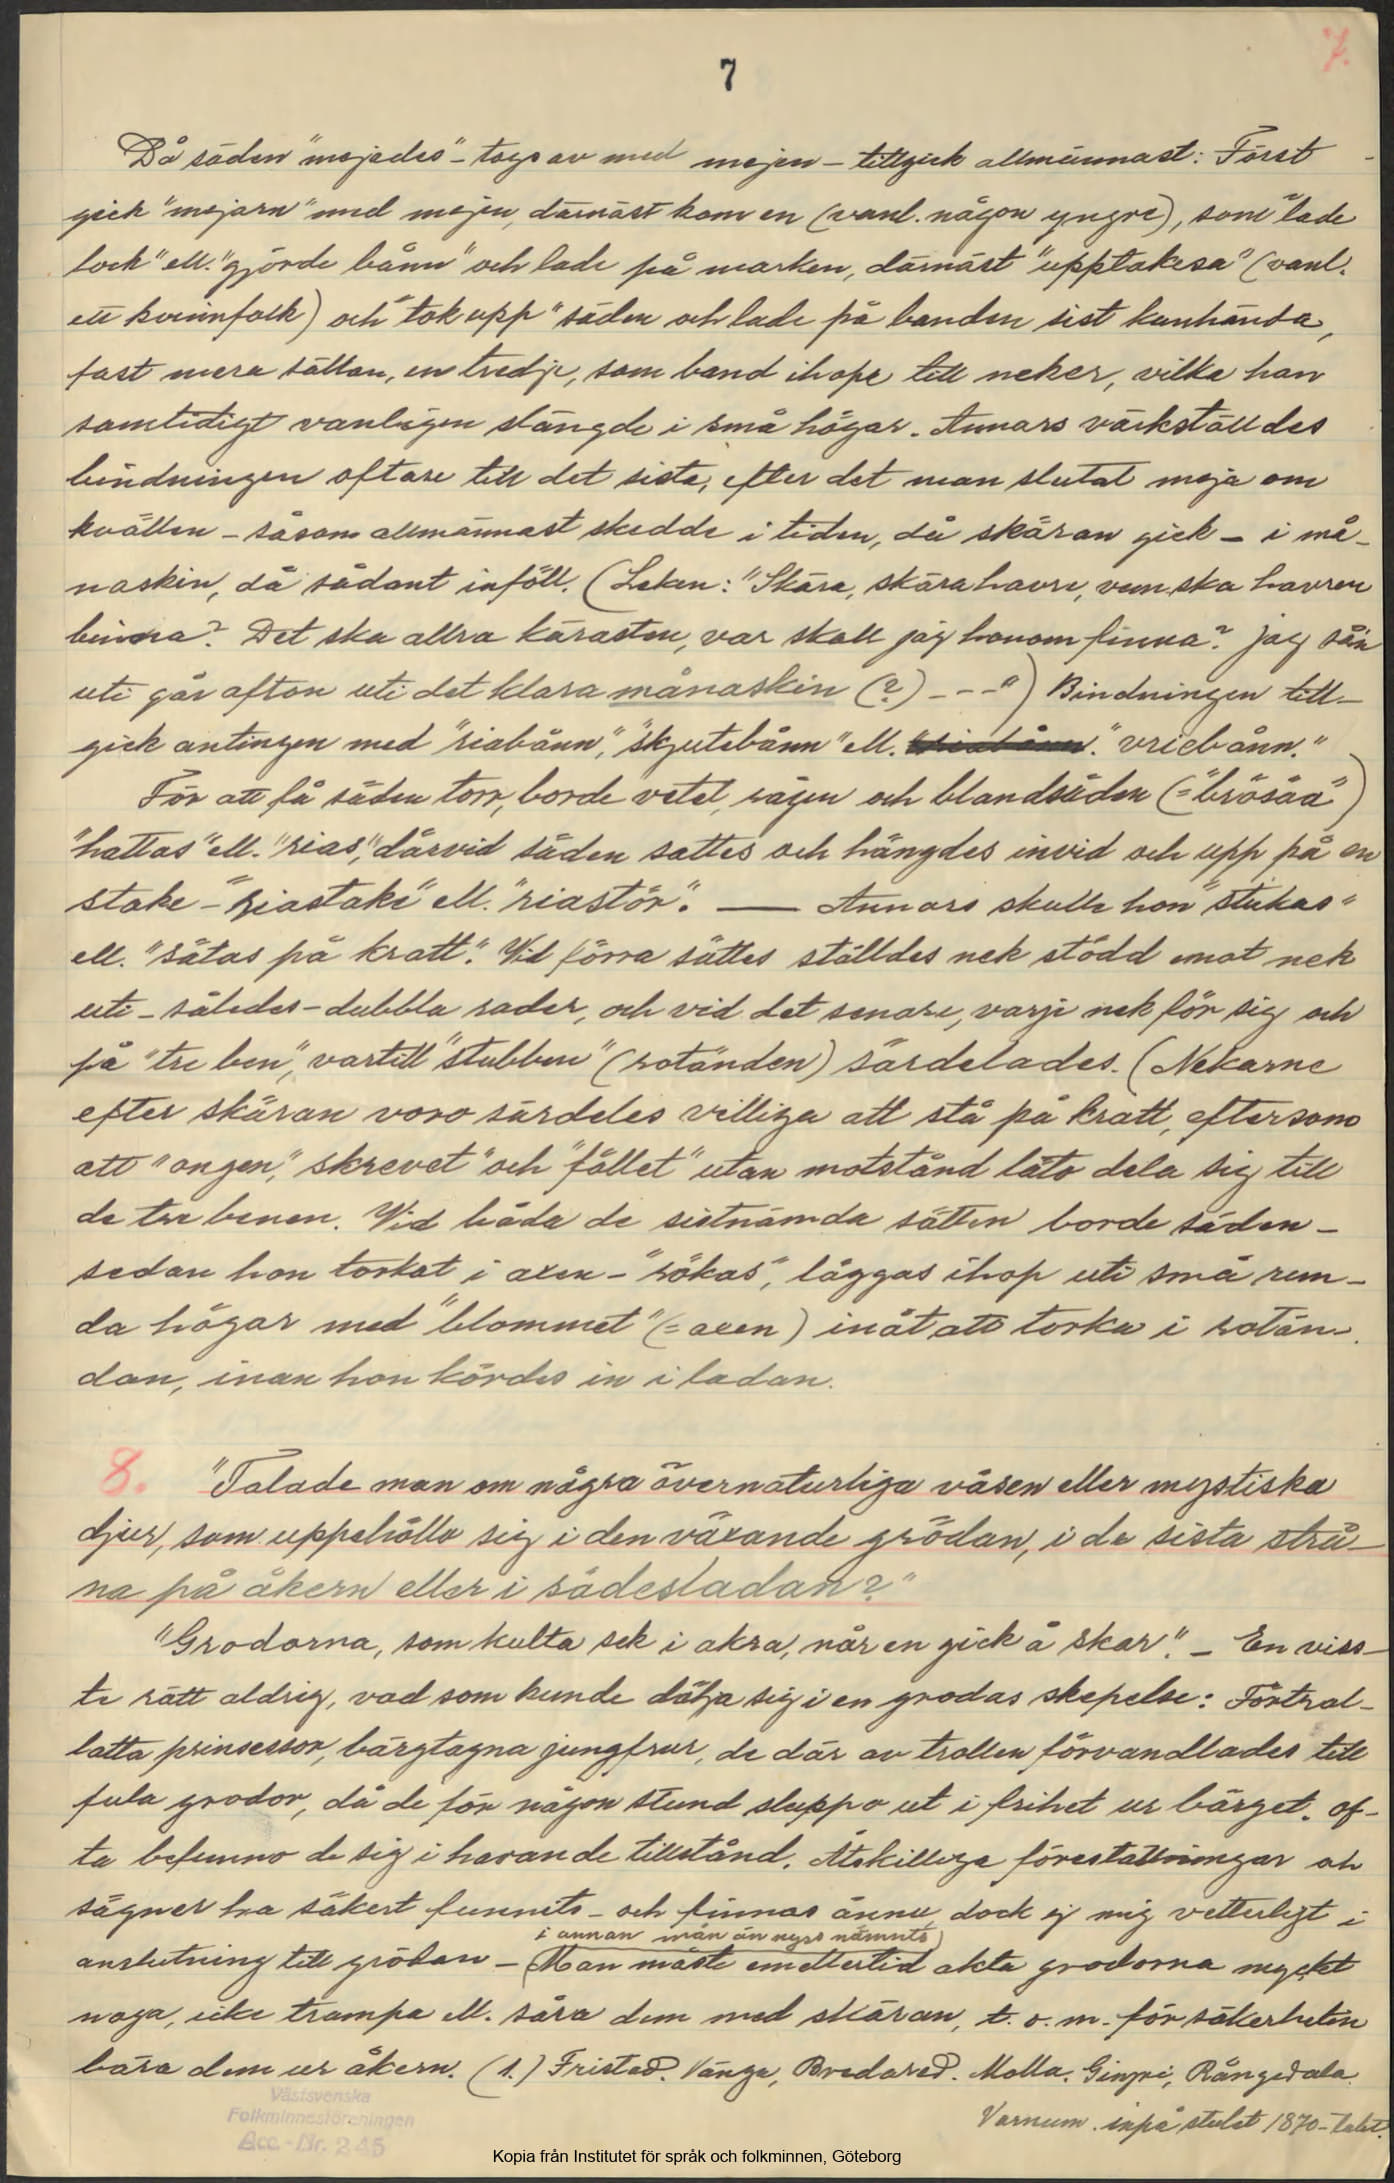 7.
7
Då säden "mejades" - togs av med mejen - tillgick allmännast: Först
gick "mejarn" med mejen, därnäst kom en (vanl. någon yngre), som "lade
lock" ell. "gjörde bånn" och lade på marken, därnäst "upptakesa" (vanl.
ett kvinnfolk) och "tok upp" säden och lade på banden sist kanhända,
fast mera sällan, en tredje, som band ihope till neker, vilka han
samtidigt vanligen slängde i små högar. Annars värkställdes
bindningen oftare till det sista, efter det man slutat meja om
kvällen - såsom allmännast skedde i tiden, då skäran gick - i må-
naskin, då sådant inföll. (Leken: "Skära, skära havre, vem ska havren
binna? Det ska allra kärasten, var skall jag honom finna? Jag så'n
uti går afton uti det klara månaskin (?) - - -") Bindningen till-
gick antingen med "riabånn", "skjutebånn" ell. "vriebånn."
För att få säden torr, borde vetet, rågen och blandsäden (="bråsäa")
"hattas" ell. "rias", därvid säden sattes och hängdes invid och upp på en
stake - "riastake" ell. "riastör". — Annars skulle hon "stukas"
ell. "sätas på kratt". Vid förra sättes ställdes nek stödd emot nek
uti - således - dubbla rader, och vid det senare, varje nek för sig och
på "tre ben", vartill "stubben" (rotänden) särdelades. (Nekarne
efter skäran voro särdeles villiga att stå på kratt, eftersom
att "angen", "skrevet" och "fället" utan motstånd läto dela sig till
de tre benen. Vid båda de sistnämda sätten borde säden -
sedan hon torkat i axen - "rökas", läggas ihop uti små run-
da högar med "blommet" (= axen) inåt att torka i rotän-
dan, inan hon kördes in i ladan.
8. "Talade man om några övernaturliga väsen eller mystiska
djur, som uppehöllo sig i den växande grödan, i de sista strå-
na på åkern eller i sädesladan?"
"Grodorna, som kulta sek i akra, når en gick å skar". - En viss-
te rätt aldrig, vad som kunde dölja sig i en grodas skepelse: Förtrol-
latta prinsessor, bärgtagna jungfrur, de där av trollen förvandlades till
fula grodor, då de för någon stund sluppo ut i frihet ur bärget. Of-
ta befunno de sig i havande tillstånd. Åtskilliga föreställningar och
sägner ha säkert funnits - och finnas ännu dock ej mig vetterligt i
i annan mån än nyss nämnts)
anslutning till grödan - (Man måste emellertid akta grodorna mycket
noga, icke trampa ell. såra dem med skäran, t. o. m. för säkerheten
bära dem ur åkern. (1.) Fristad. Vänga, Bredared. Molla. Gingri, Rångedala.
Varnum. inpå slutet 1870-talet.
Västsvenska
Folkminnesföreningen
Acc.-Nr. 245
Kopia från Institutet för språk och folkminnen, Göteborg